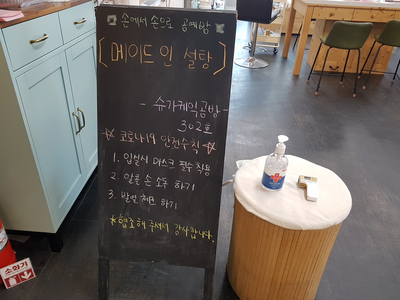 손에서 손으로 공예방
[메이드 인 설탕]
- 슈가케익공방 -
302호
☆코로나19 안전수칙☆
1. 입실시 마스크 필수 착용
2. 알콜 손 소독 하기
3. 발열 체크 하기
☆협조해 주셔서 감사합니다.
소화기